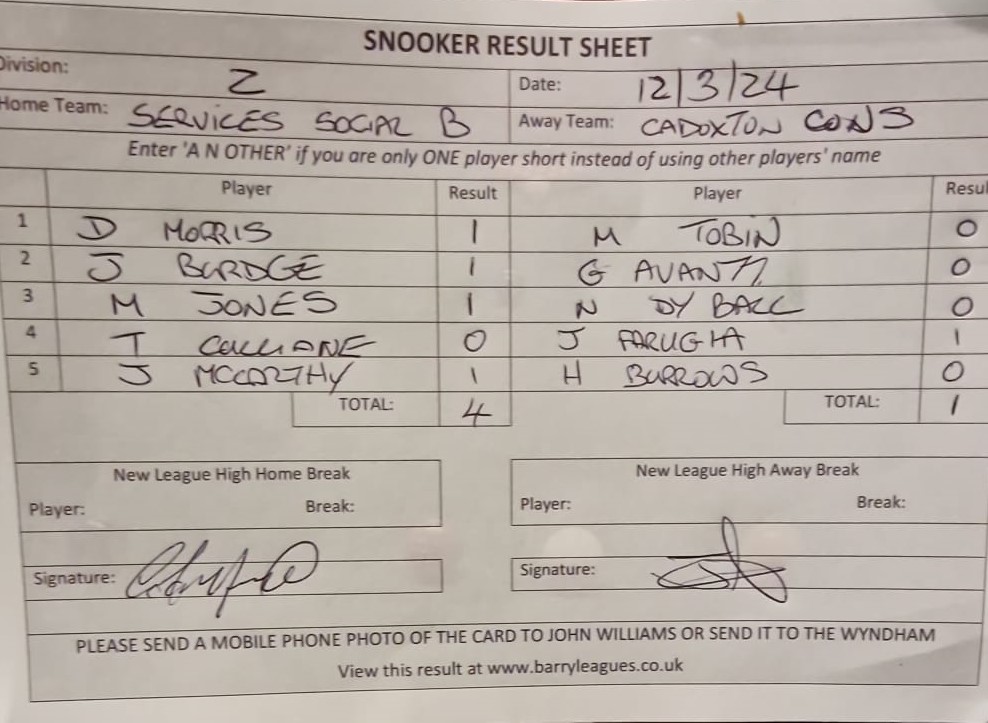 SNOOKER RESULT SHEET
Division: 2 Date: 12/3/24
Home Team: SERVICES SOCIAL B Away Team: CADOXTON CONS
Enter 'A N OTHER' if you are only ONE player short instead of using other players' name
Player Result Player Resul
1 D MORRIS 1 M TOBIN 0
2 J BURDGE 1 G AVANTI 0
3 M JONES 1 N DYBALL 0
4 T 0 J FARUGIA 1
5 J MCCARTHY 1 H BURROWS 0
TOTAL: 4 TOTAL: 1
New League High Home Break New League High Away Break
Player: Break: Player: Break:
Signature: Signature:
PLEASE SEND A MOBILE PHONE PHOTO OF THE CARD TO JOHN WILLIAMS OR SEND IT TO THE WYNDHAM
View this result at www.barryleagues.co.uk